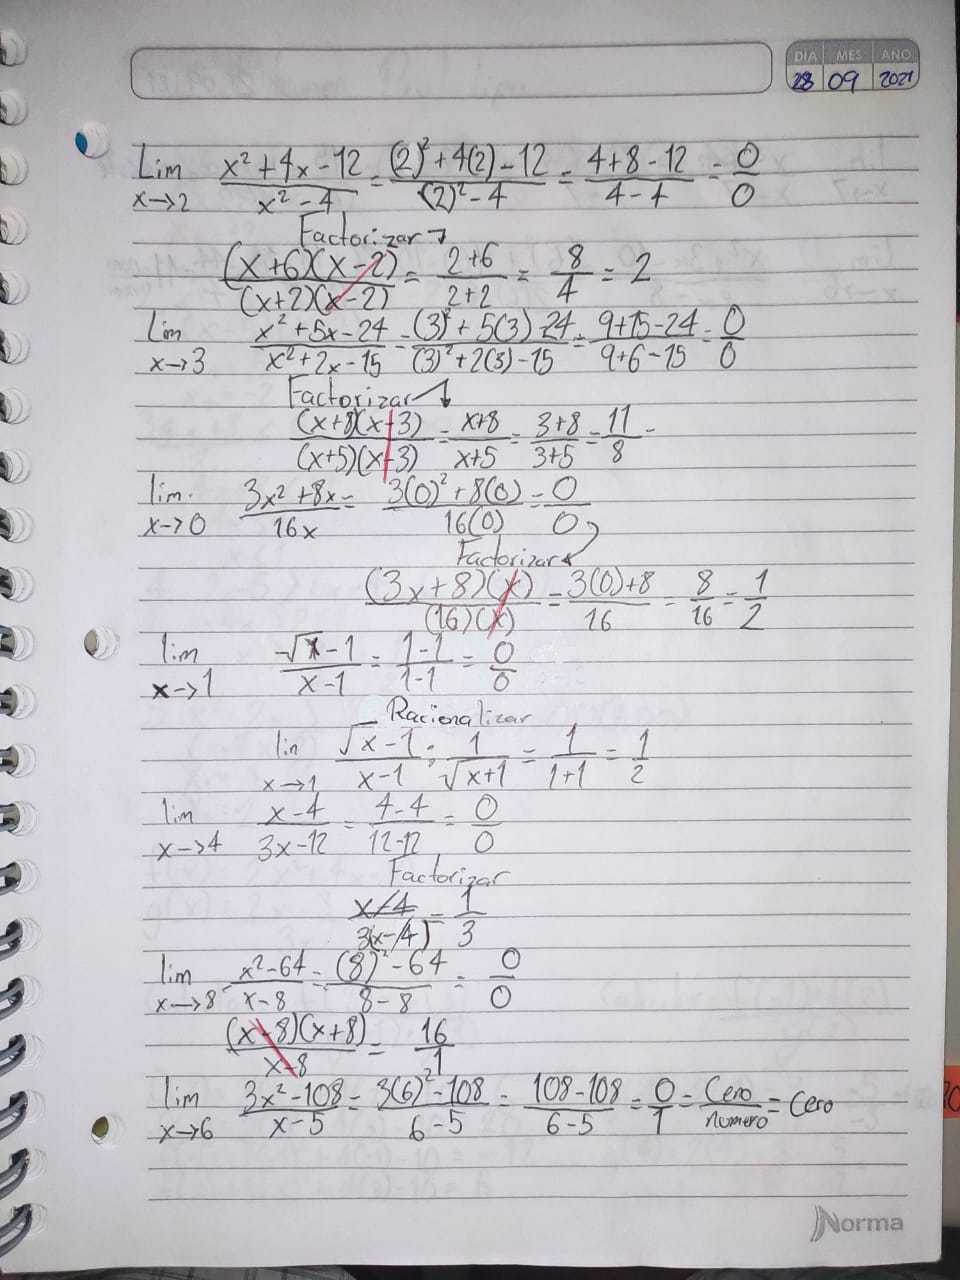 DÍA MES AÑO
28 09 2021
Lim x→2 (x² + 4x - 12)/(x² - 4) = ((2)² + 4(2) - 12)/((2)² - 4) = (4 + 8 - 12)/(4 - 4) = 0/0
Factorizar
((x+6)(x-2))/((x+2)(x-2)) = (2+6)/(2+2) = 8/4 = 2
Lim x→3 (x² + 5x - 24)/(x² + 2x - 15) = ((3)² + 5(3) - 24)/((3)² + 2(3) - 15) = (9+15-24)/(9+6-15) = 0/0
Factorizar
((x+8)(x-3))/((x+5)(x-3)) = (x+8)/(x+5) = (3+8)/(3+5) = 11/8 -
lim. x→0 (3x² + 8x)/(16x) = (3(0)² + 8(0))/(16(0)) = 0/0
Factorizar
((3x+8)(x))/((16)(x)) = (3(0)+8)/16 = 8/16 = 1/2
lim x→1 (√x - 1)/(x-1) = (1-1)/(1-1) = 0/0
Racionalizar
lin x→1 (√x-1)/(x-1) : 1/(√x+1) = 1/(1+1) = 1/2
lim x→4 (x-4)/(3x-12) = (4-4)/(12-12) = 0/0
Factorizar
(x-4)/(3(x-4)) = 1/3
lim x→8 (x²-64)/(x-8) = ((8)²-64)/(8-8) = 0/0
((x-8)(x+8))/(x-8) = 16/1
lim x→6 (3x²-108)/(x-5) = (3(6)²-108)/(6-5) = (108-108)/(6-5) = 0/1 = Cero/nomero = Cero
Norma